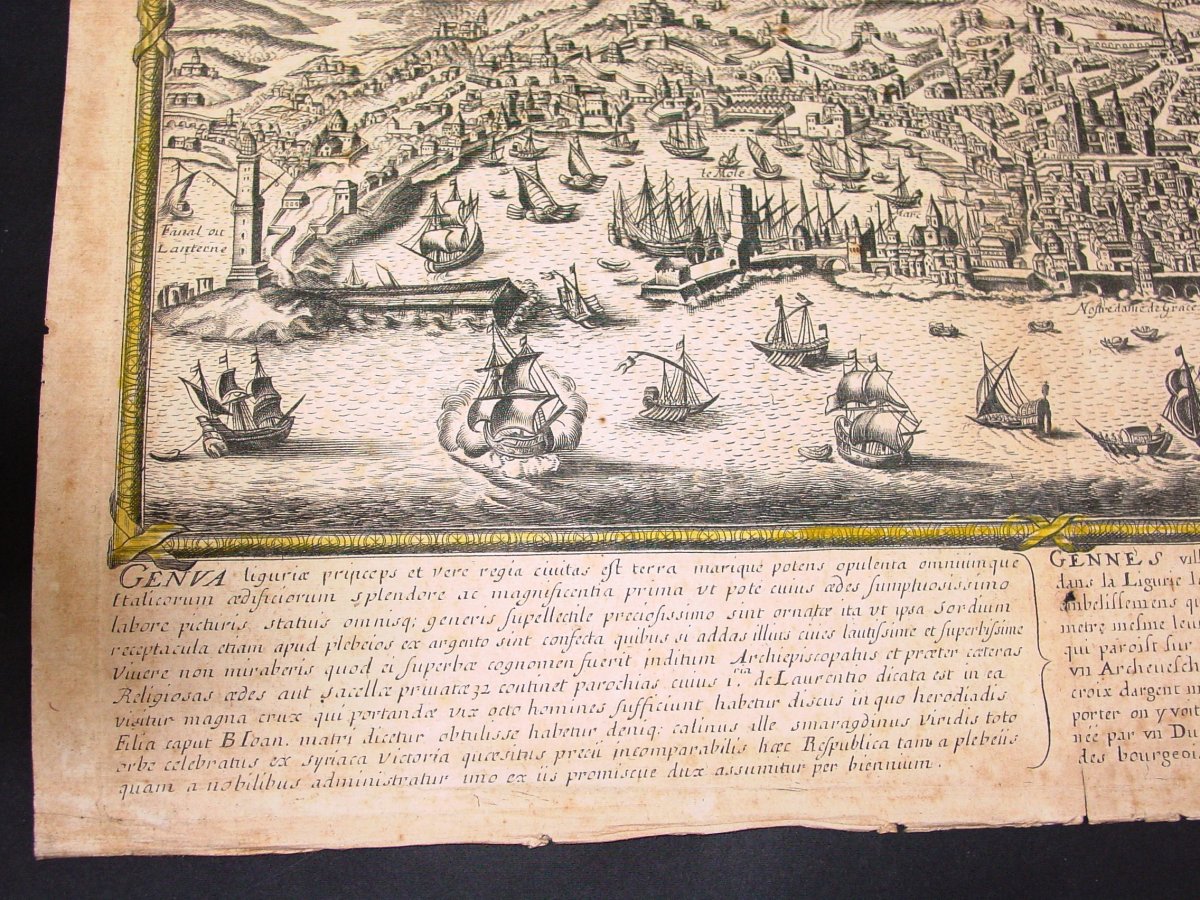 Fanal ou
Lanterne
le Mole
Nostre dame de Grace
GENVA liguriæ princeps et vere regia civitas est terra marique potens opulenta omniumque
Italicorum ædificiorum splendore ac magnificentia prima vt pote cuius ædes sumptuosissimo
labore picturis, statuis omnisq; generis supellectile preciosissimo sint ornatæ ita vt ipsa sordium
receptacula etiam apud plebeios ex argento sint confecta quibus si addas illuis ciues lautissime et superbissime
Viuere non miraberis quod ei superbæ cognomen fuerit inditum Archiepiscopatus et præter cæteras
Religiosas ædes aut sacellæ priuatæ 32 continet parochias cuius 1.ria de Laurentio dicata est in ea
visitur magna crux qui portandæ vix octo homines sufficiunt habetur discus in quo herodiadis
Filia caput B Ioan. matri dicetur obtulisse habetur deniq; calinus ille smaragdinus viridis toto
orbe celebratus ex syriaca victoria quæsitus precii incomparabilis hæc Respublica tam a plebeiis
quam a nobilibus administratur uno ex iis promiscue dux assumitur per biennium.
GENNES vill
dans la Ligurie l
embelissemens qu
metre mesme leus
qui paroist sur
vn Archeuesch
croix dargent m
porter on y voit
née par vn Du
des bourgeois